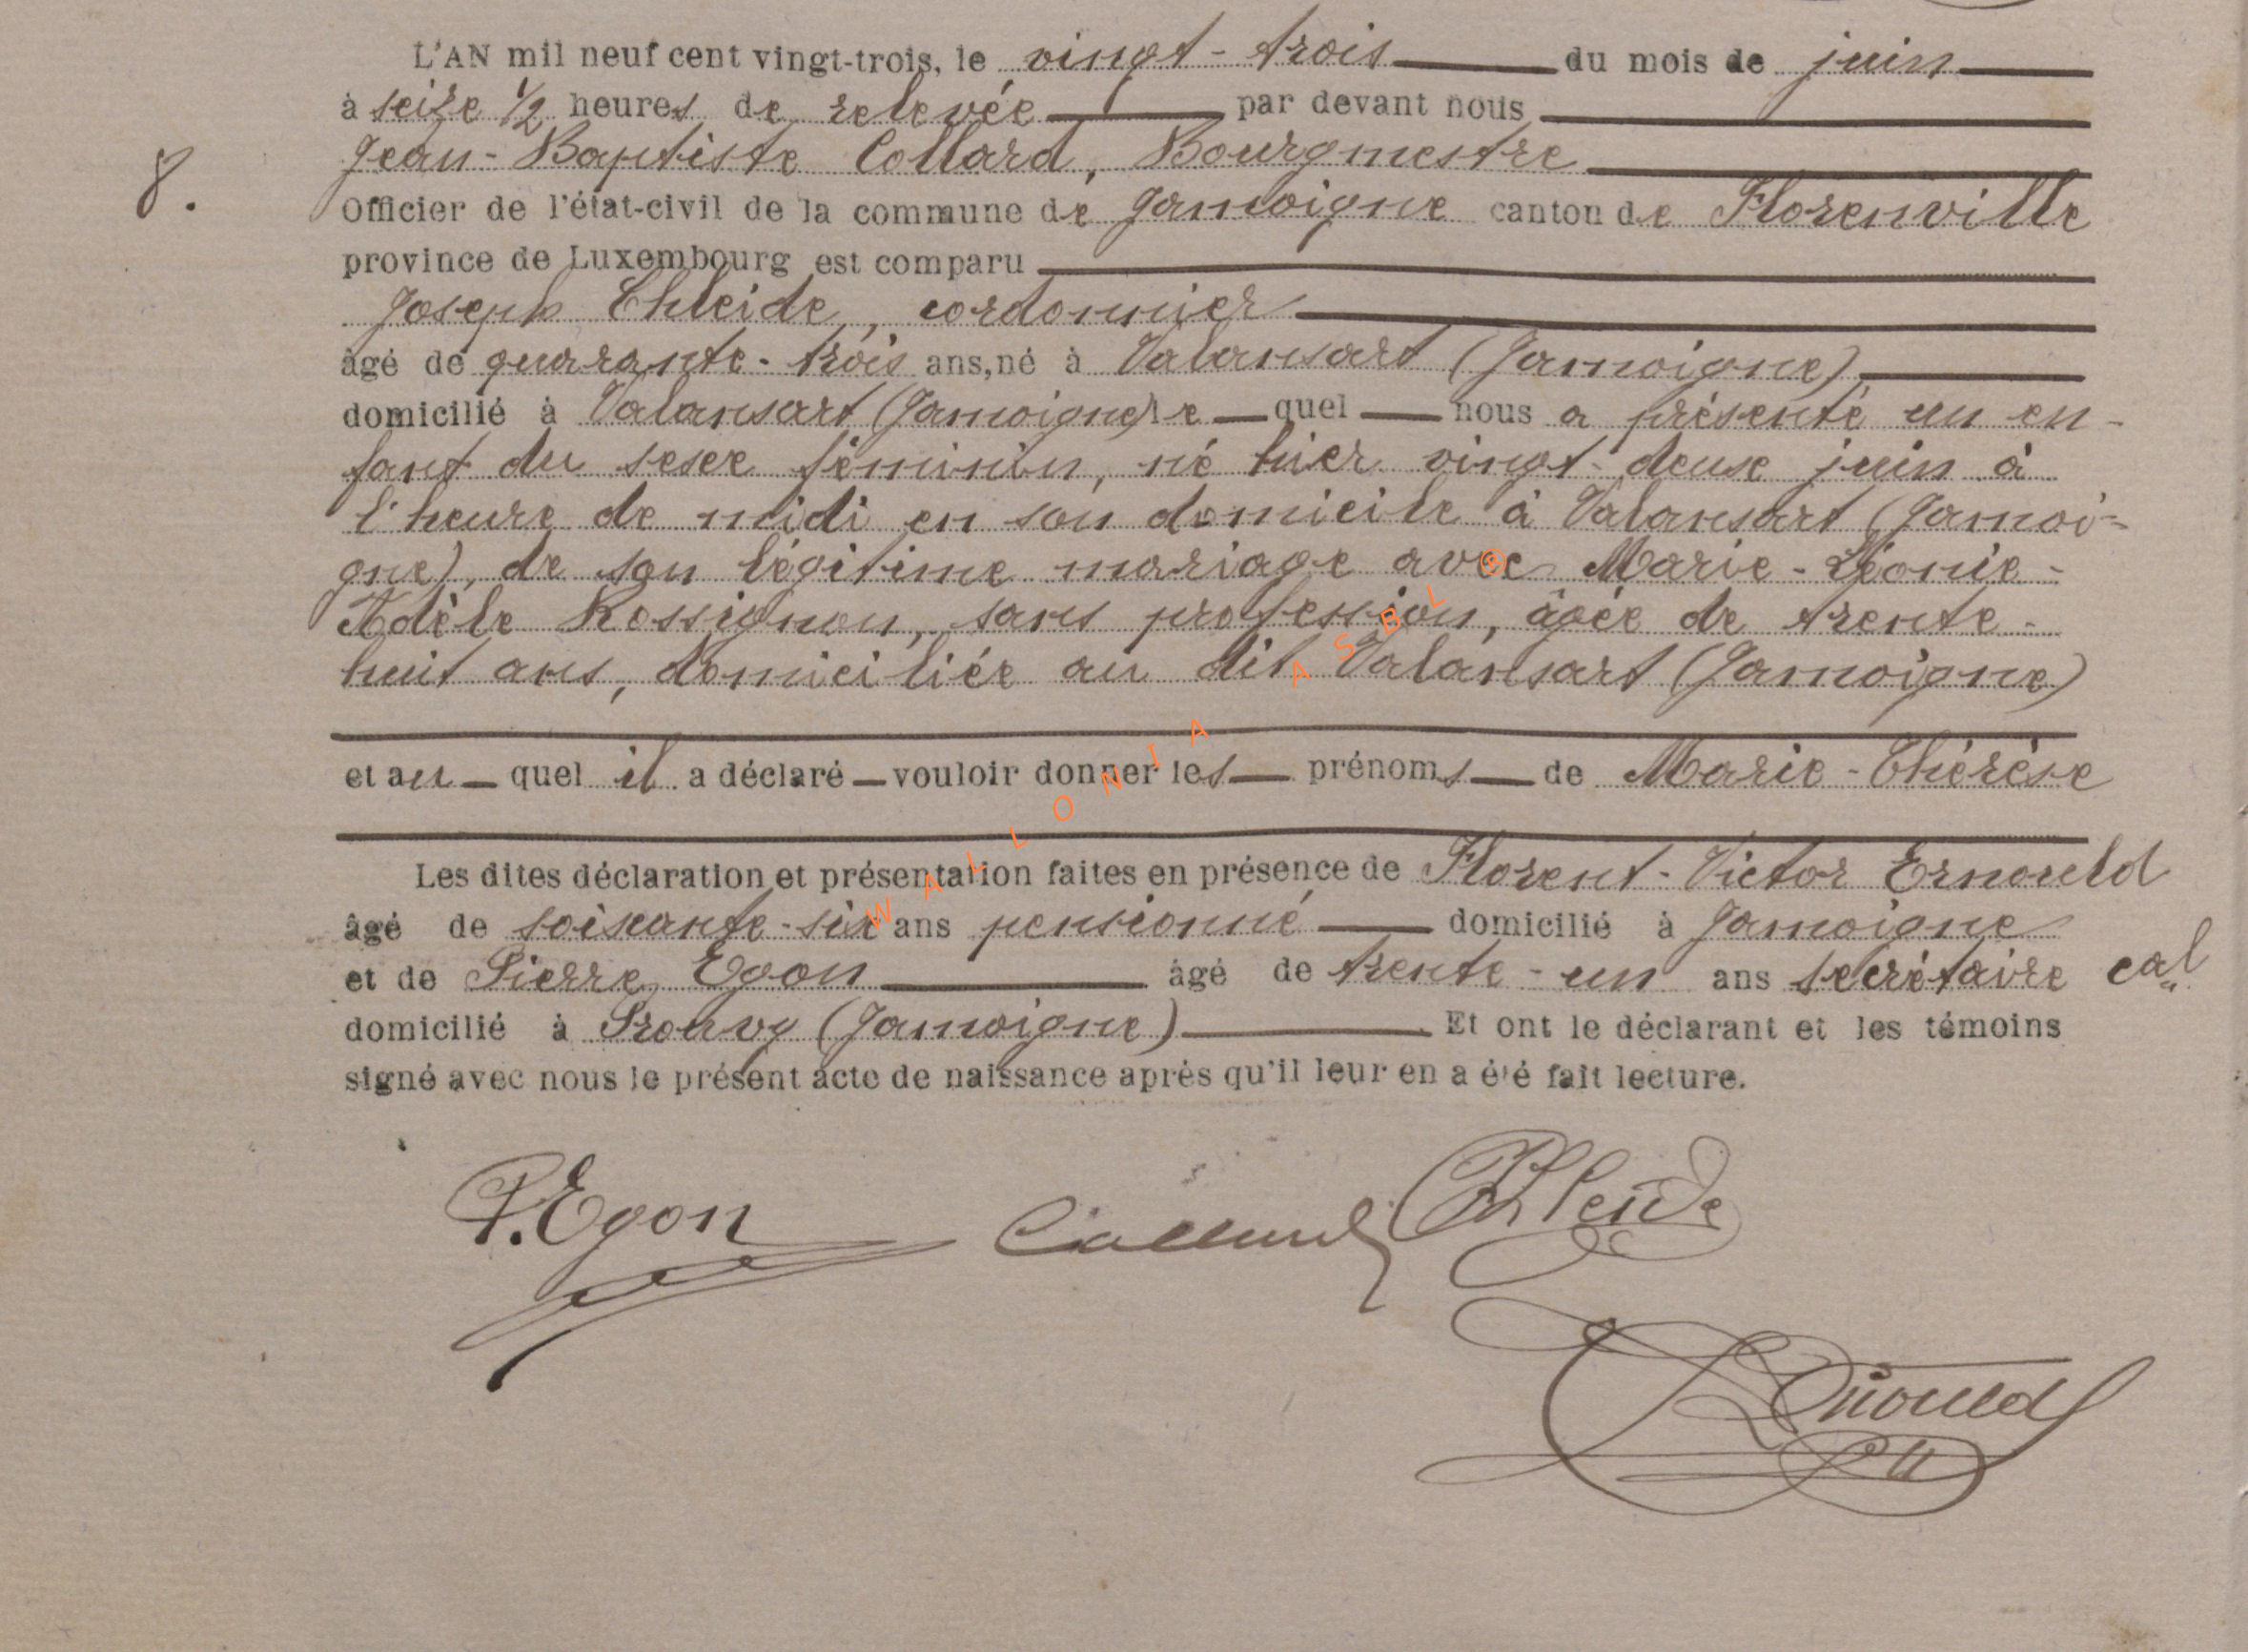 L'AN mil neuf cent vingt-trois, le vingt-trois du mois de juin
à seize 1/2 heures de relevée par devant nous
8.
Jean-Baptiste Collard, Bourgmestre
Officier de l'état-civil de la commune de Jamoigne canton de Florenville
province de Luxembourg est comparu
Joseph Thleide, cordonnier
âgé de quarante-trois ans, né à Valansart (Jamoigne)
domicilié à Valansart (Jamoigne) le quel nous a présenté un en-
fant du sexe féminin, né hier vingt-deux juin à
l'heure de midi en son domicile à Valansart (Jamoi-
gne), de son légitime mariage avec Marie-Léonie-
Adèle Rossignon, sans profession, âgée de trente-
huit ans, domiciliée au dit Valansart (Jamoigne)
et au quel il a déclaré vouloir donner les prénoms de Marie-Thérèse
Les dites déclaration et présentation faites en présence de Florent-Victor Ernould
âgé de soixante-six ans pensionné domicilié à Jamoigne
et de Pierre Egon âgé de trente-un ans secrétaire cal
domicilié à Prouvy (Jamoigne) Et ont le déclarant et les témoins
signé avec nous le présent acte de naissance après qu'il leur en a été fait lecture.
P. Egon Collard Thleide
Ernould
WALLONIA ASBL ©